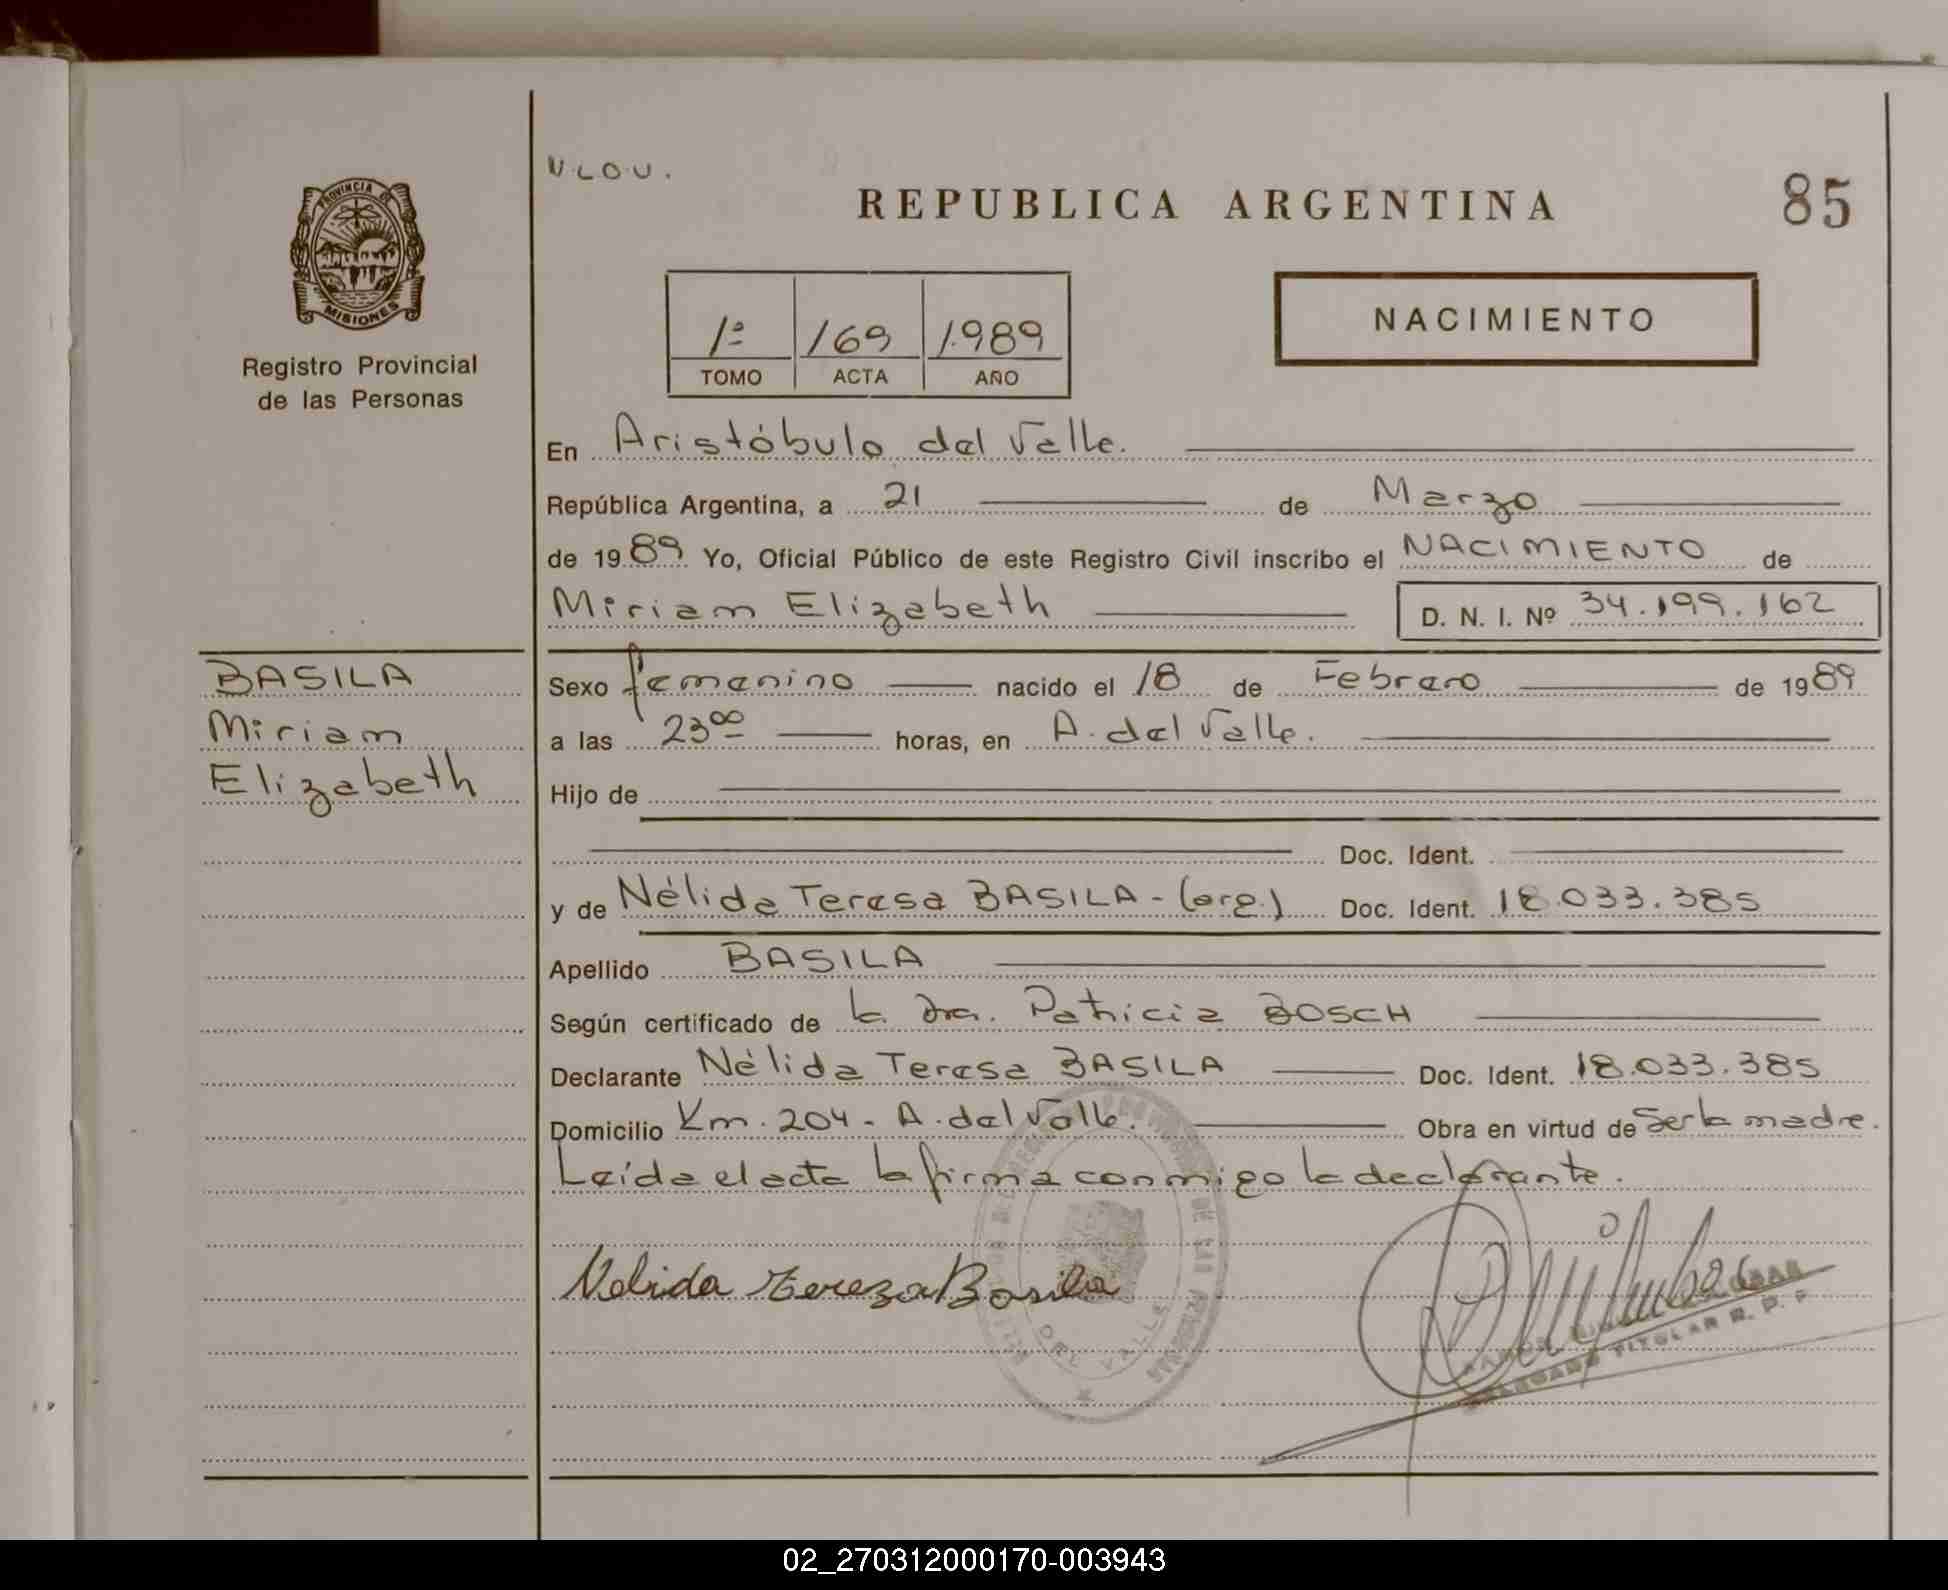 V.L.O.U.
REPUBLICA ARGENTINA
85
PROVINCIA DE
MISIONES
Registro Provincial
de las Personas
1º 169 1.989
TOMO ACTA AÑO
NACIMIENTO
En Aristóbulo del Valle.
República Argentina, a 21 de Marzo
de 1989 Yo, Oficial Público de este Registro Civil inscribo el NACIMIENTO de
Miriam Elizabeth D. N. I. Nº 34.199.162
BASILA
Miriam
Elizabeth
Sexo femenino nacido el 18 de Febrero de 1989
a las 23ºº horas, en A. del Valle.
Hijo de
Doc. Ident.
y de Nélida Teresa BASILA - (arg.) Doc. Ident. 18.033.385
Apellido BASILA
Según certificado de la Dra. Patricia BOSCH
Declarante Nélida Teresa BASILA Doc. Ident. 18.033.385
Domicilio Km. 204 - A. del Valle. Obra en virtud de Ser la madre.
Leída el acta la firma conmigo la declarante.
Nelida Tereza Basila
DEL VALLE
TITULAR R. P. P.
02_270312000170-003943